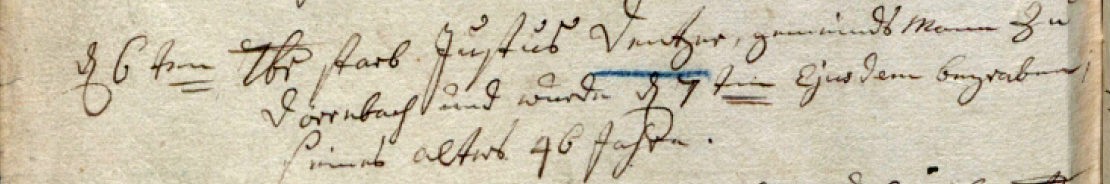 d 6ten 7br starb Justus Dentzer, gemeinds Mann zu
Dörrnbach und wurde d 7ten Ejusdem begraben,
seines alters 46 Jahre.